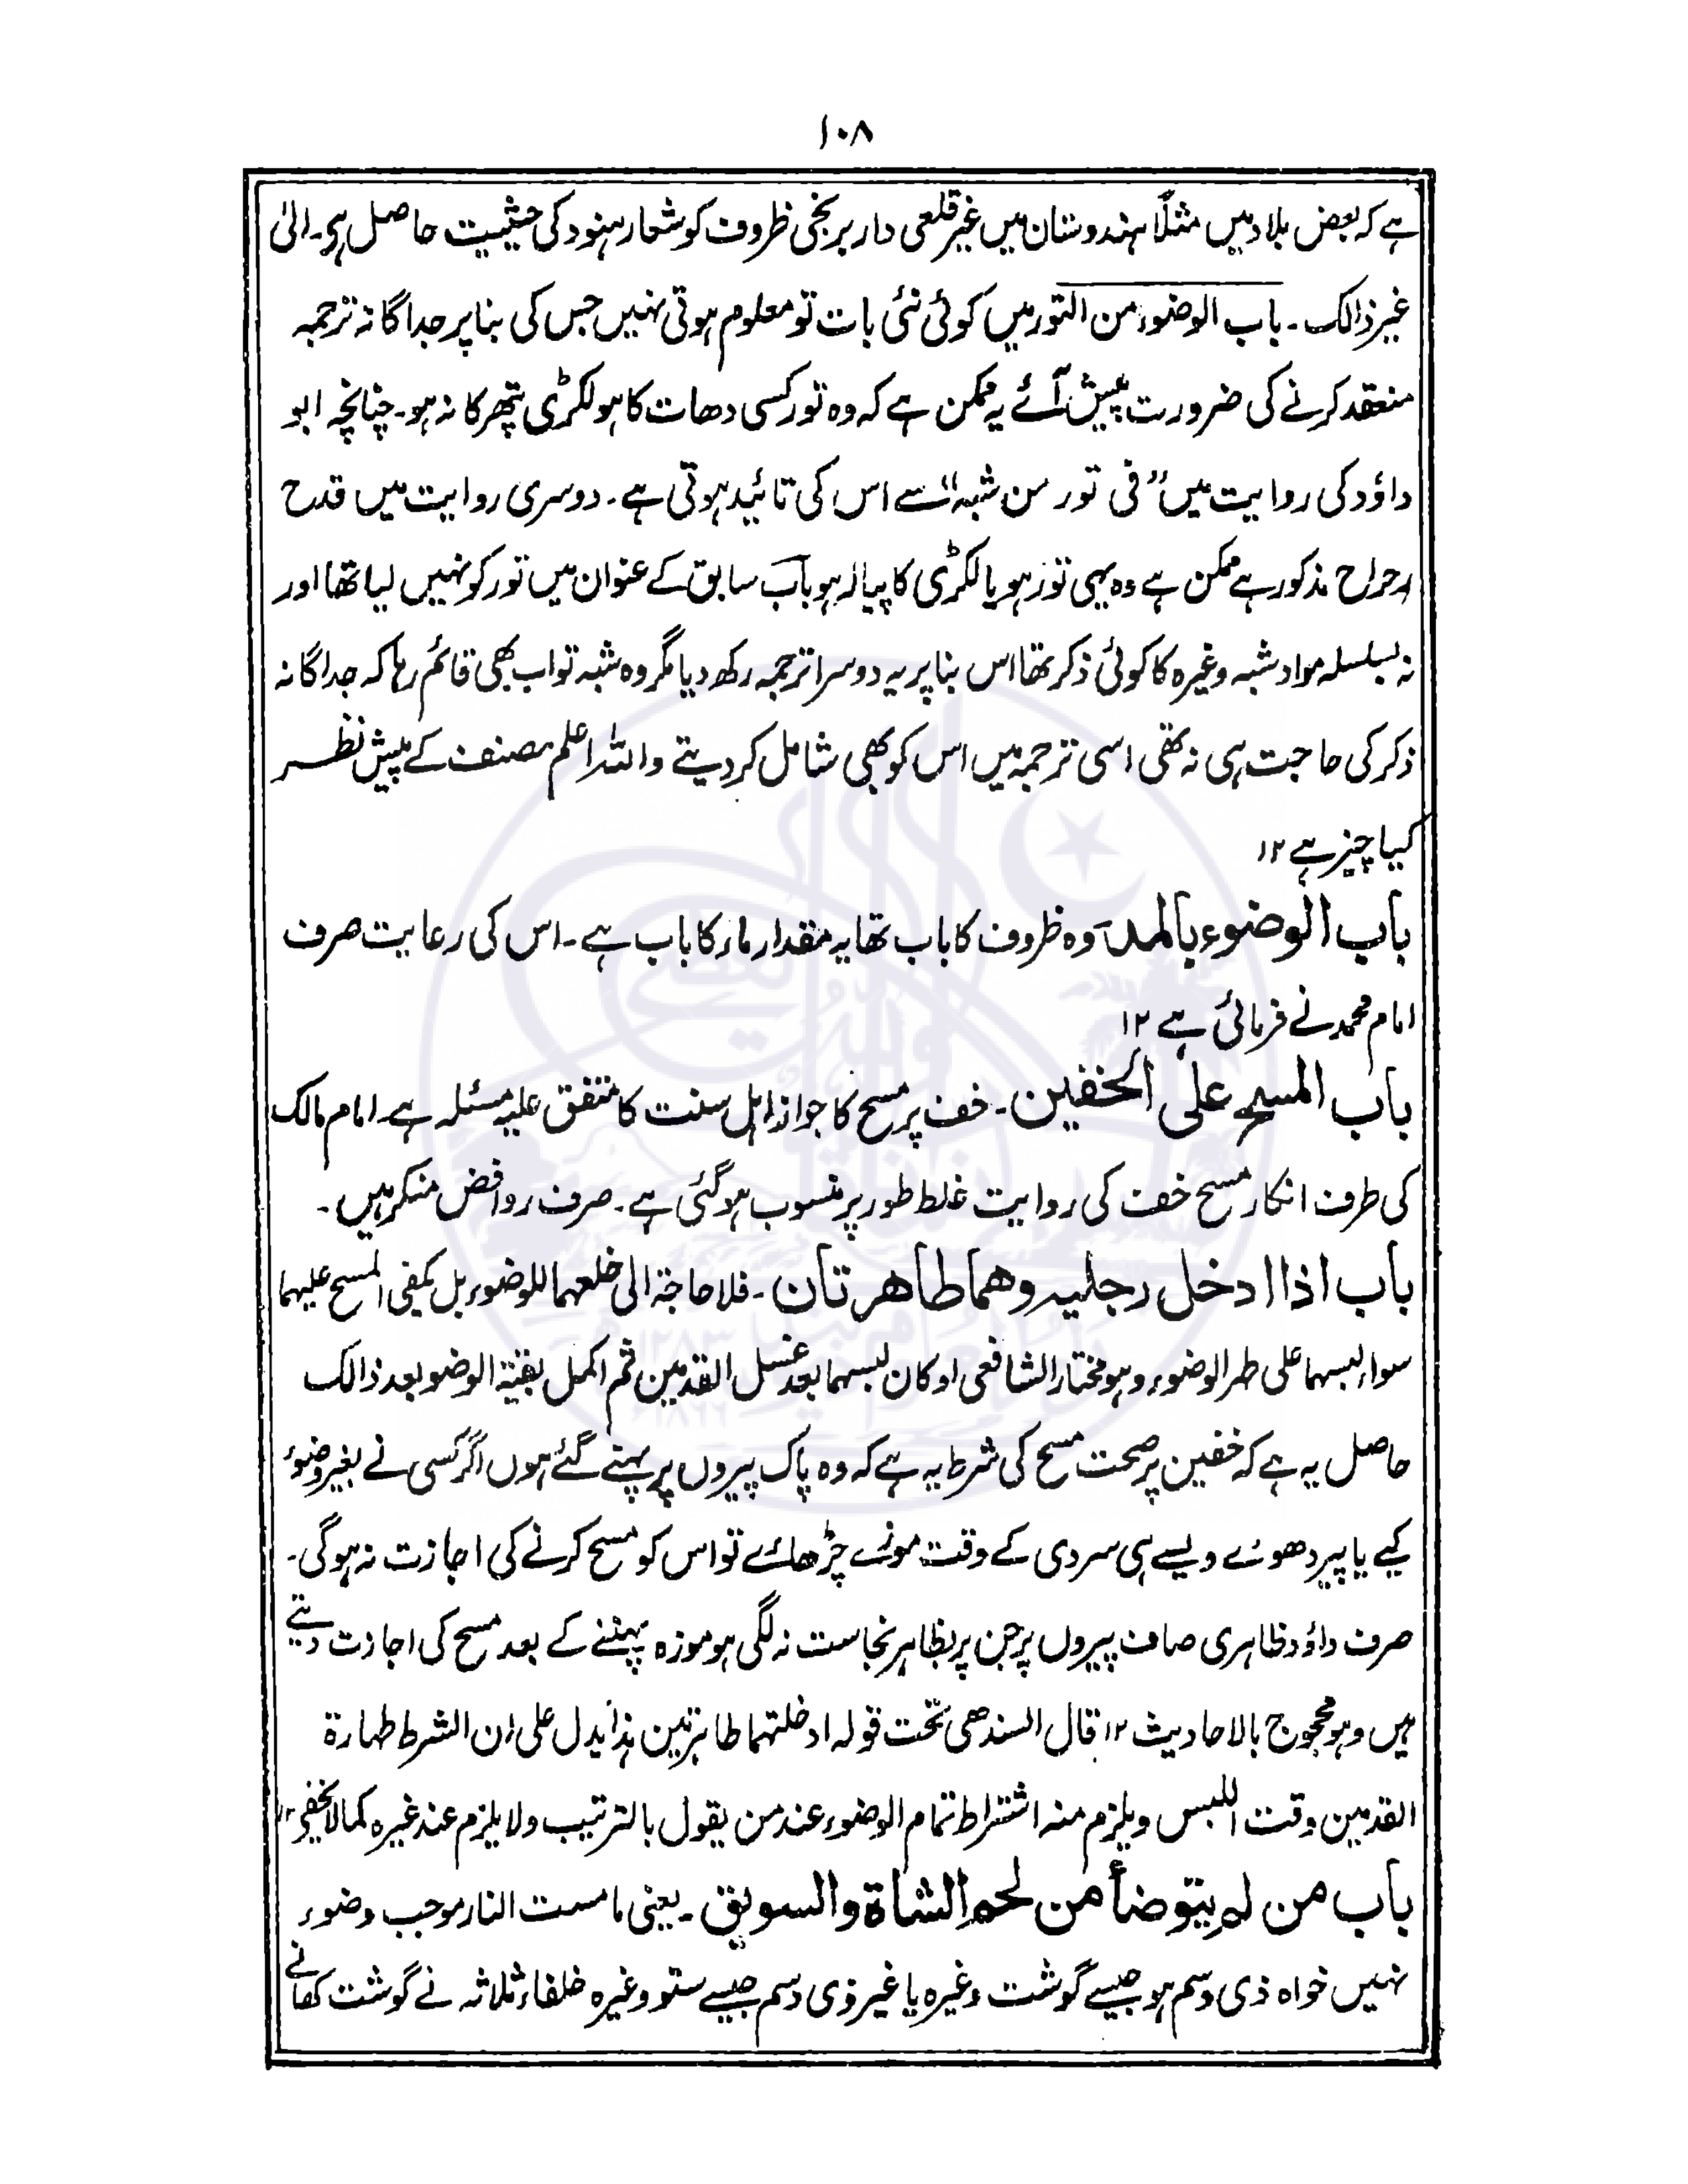 ۱۰۸
ہے کہ بعض بلاد میں مثلاً ہندوستان میں غیر قلعی دار برنجی ظروف کو شعار ہنود کی حیثیت حاصل ہی۔ الیٰ
غیر ذالک ۔ باب الوضوء من التور میں کوئی نئی بات تو معلوم ہوتی نہیں جس کی بنا پر جداگانہ ترجمہ
منعقد کرنے کی ضرورت پیش آئے یہ ممکن ہے کہ وہ تور کسی دھات کا ہو لکڑی پتھر کا نہ ہو۔ چنانچہ ابو
داؤد کی روایت میں ”فی تور من شبہ“ سے اس کی تائید ہوتی ہے ۔ دوسری روایت میں قدح
رحراح مذکور ہے ممکن ہے وہ یہی تور ہو یا لکڑی کا پیالہ ہو باب سابق کے عنوان میں تور کو نہیں لیا تھا اور
نہ بسلسلہ مواد شبہ وغیرہ کا کوئی ذکر تھا اس بنا پر یہ دوسرا ترجمہ رکھ دیا مگر وہ شبہ تو اب بھی قائم رہا کہ جداگانہ
ذکر کی حاجت ہی نہ تھی اسی ترجمہ میں اس کو بھی شامل کر دیتے واللہ اعلم مصنف کے پیش نظر
کیا چیز ہے ۱۲
باب الوضوء بالمد۔ وہ ظروف کا باب تھا یہ مقدار ماء کا باب ہے ۔ اس کی رعایت صرف
امام محمد نے فرمائی ہے ۱۲
باب المسح علی الخفین ۔ خف پر مسح کا جواز اہل سنت کا متفق علیہ مسئلہ ہے۔ امام مالک
کی طرف انکار مسح خف کی روایت غلط طور پر منسوب ہو گئی ہے ۔ صرف روافض منکر ہیں ۔
باب اذا ادخل رجلیہ وھما طاھرتان ۔ فلا حاجۃ الی خلعہما للوضوء بل یکفی المسح علیہما
سواء لبسہما علی طہر الوضوء وہو مختار الشافعی او کان لبسہما بعد غسل القدمین ثم اکمل بقیۃ الوضو بعد ذالک
حاصل یہ ہے کہ خفین پر صحت مسح کی شرط یہ ہے کہ وہ پاک پیروں پر پہنے گئے ہوں اگر کسی نے بغیر وضوء
کیے یا پیر دھوئے ویسے ہی سردی کے وقت موزے چڑھائے تو اس کو مسح کرنے کی اجازت نہ ہوگی ۔
صرف داؤد ظاہری صاف پیروں پر جن پر بظاہر نجاست نہ لگی ہو موزہ پہننے کے بعد مسح کی اجازت دیتے
ہیں وہو محجوج بالاحادیث ۱۲ قال السندھی تحت قولہ ادخلتہما طاہرتین ہذا یدل علی ان الشرط طہارۃ
القدمین وقت اللبس ویلزم منہ اشتراط تمام الوضوء عند من یقول بالترتیب ولا یلزم عند غیرہ کما لا یخفی ۱۲
باب من لم یتوضأ من لحم الشاۃ والسویق ۔ یعنی ما مست النار موجب وضوء
نہیں خواہ ذی دسم ہو جیسے گوشت وغیرہ یا غیر ذی دسم جیسے ستو وغیرہ خلفاء ثلاثہ نے گوشت کھانے